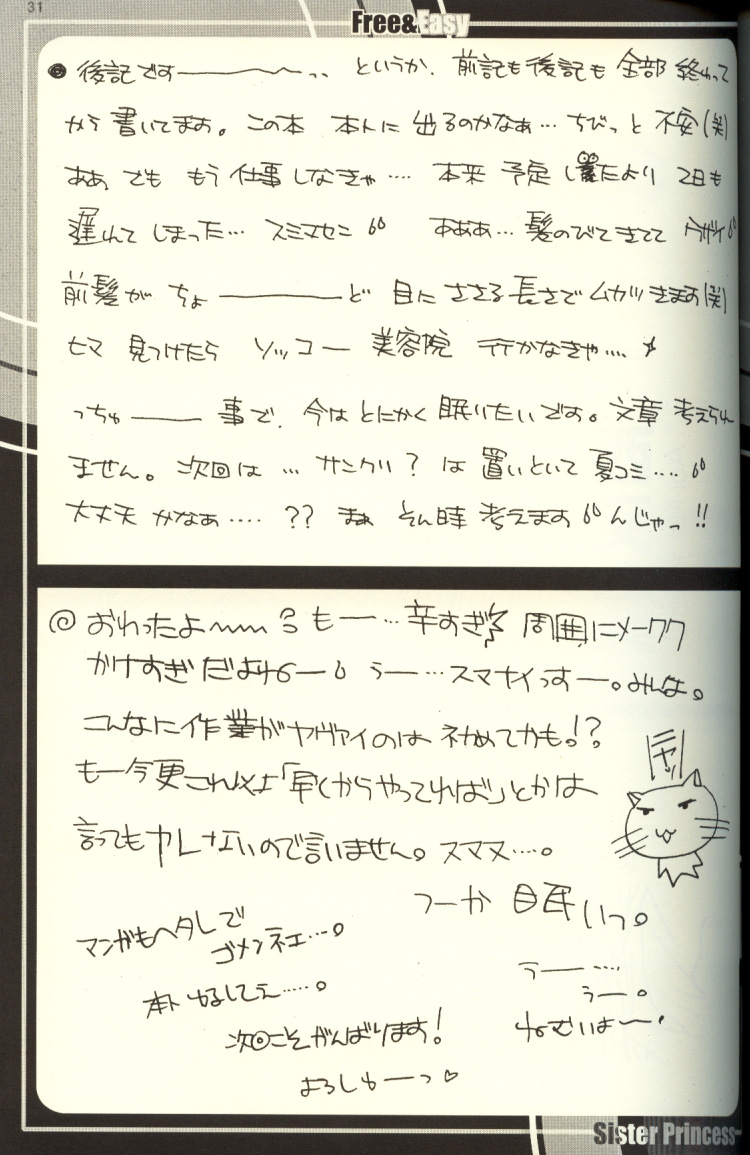 31
Free&Easy
後記です――――〜〜.. というか、前記も後記も全部終わって
から書いてます。この本 本トに出るのかなぁ… ちびっと不安(笑)
ああ でも もう仕事しなきゃ…. 本来 予定してたより 2日も
遅れてしまった… スミマセン あああ… 髪のびてきてて ウザイ
前髪がちょ――――ど 目にささる長さでムカつきます(笑)
ヒマ 見つけたら ソッコー 美容院 行かなきゃ….
っちゅ――― 事で、今はとにかく眠りたいです。文章 考えられ
ません。次回は … サンクリ? は 置いといて 夏コミ….
大丈夫かなぁ….. ?? まぁ そん時 考えます んじゃっ!!
おわったよ〜〜 も―…辛すぎ 周囲にメーワク
かけすぎだよオレー う―…スマナイっすー。みんな。
こんなに作業がヤヴァイのは初めてかも!?
もー今更これ以上「早くからやってれば」とかは
言ってもヤレないので言いません。スマヌ….。
ニヤッ
つーか 眠いっ。
マンガもヘタレで
ゴメンネエ…。
本ト ゆるしてぇ…..。
うー―….
うー。
ねむいよ〜
次回こそがんばります!
よろしゅーっ♡
Sister Princess